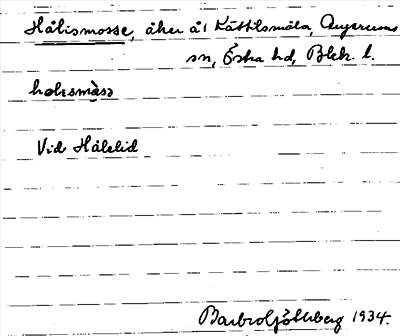 Hålismosse, åker å1 Kättilsmåla, Augerums
sn, Östra hd, Blek. l.
hɷlɩsmɷ̀sə
Vid Hålelid
Barbro Götlsberg 1934.